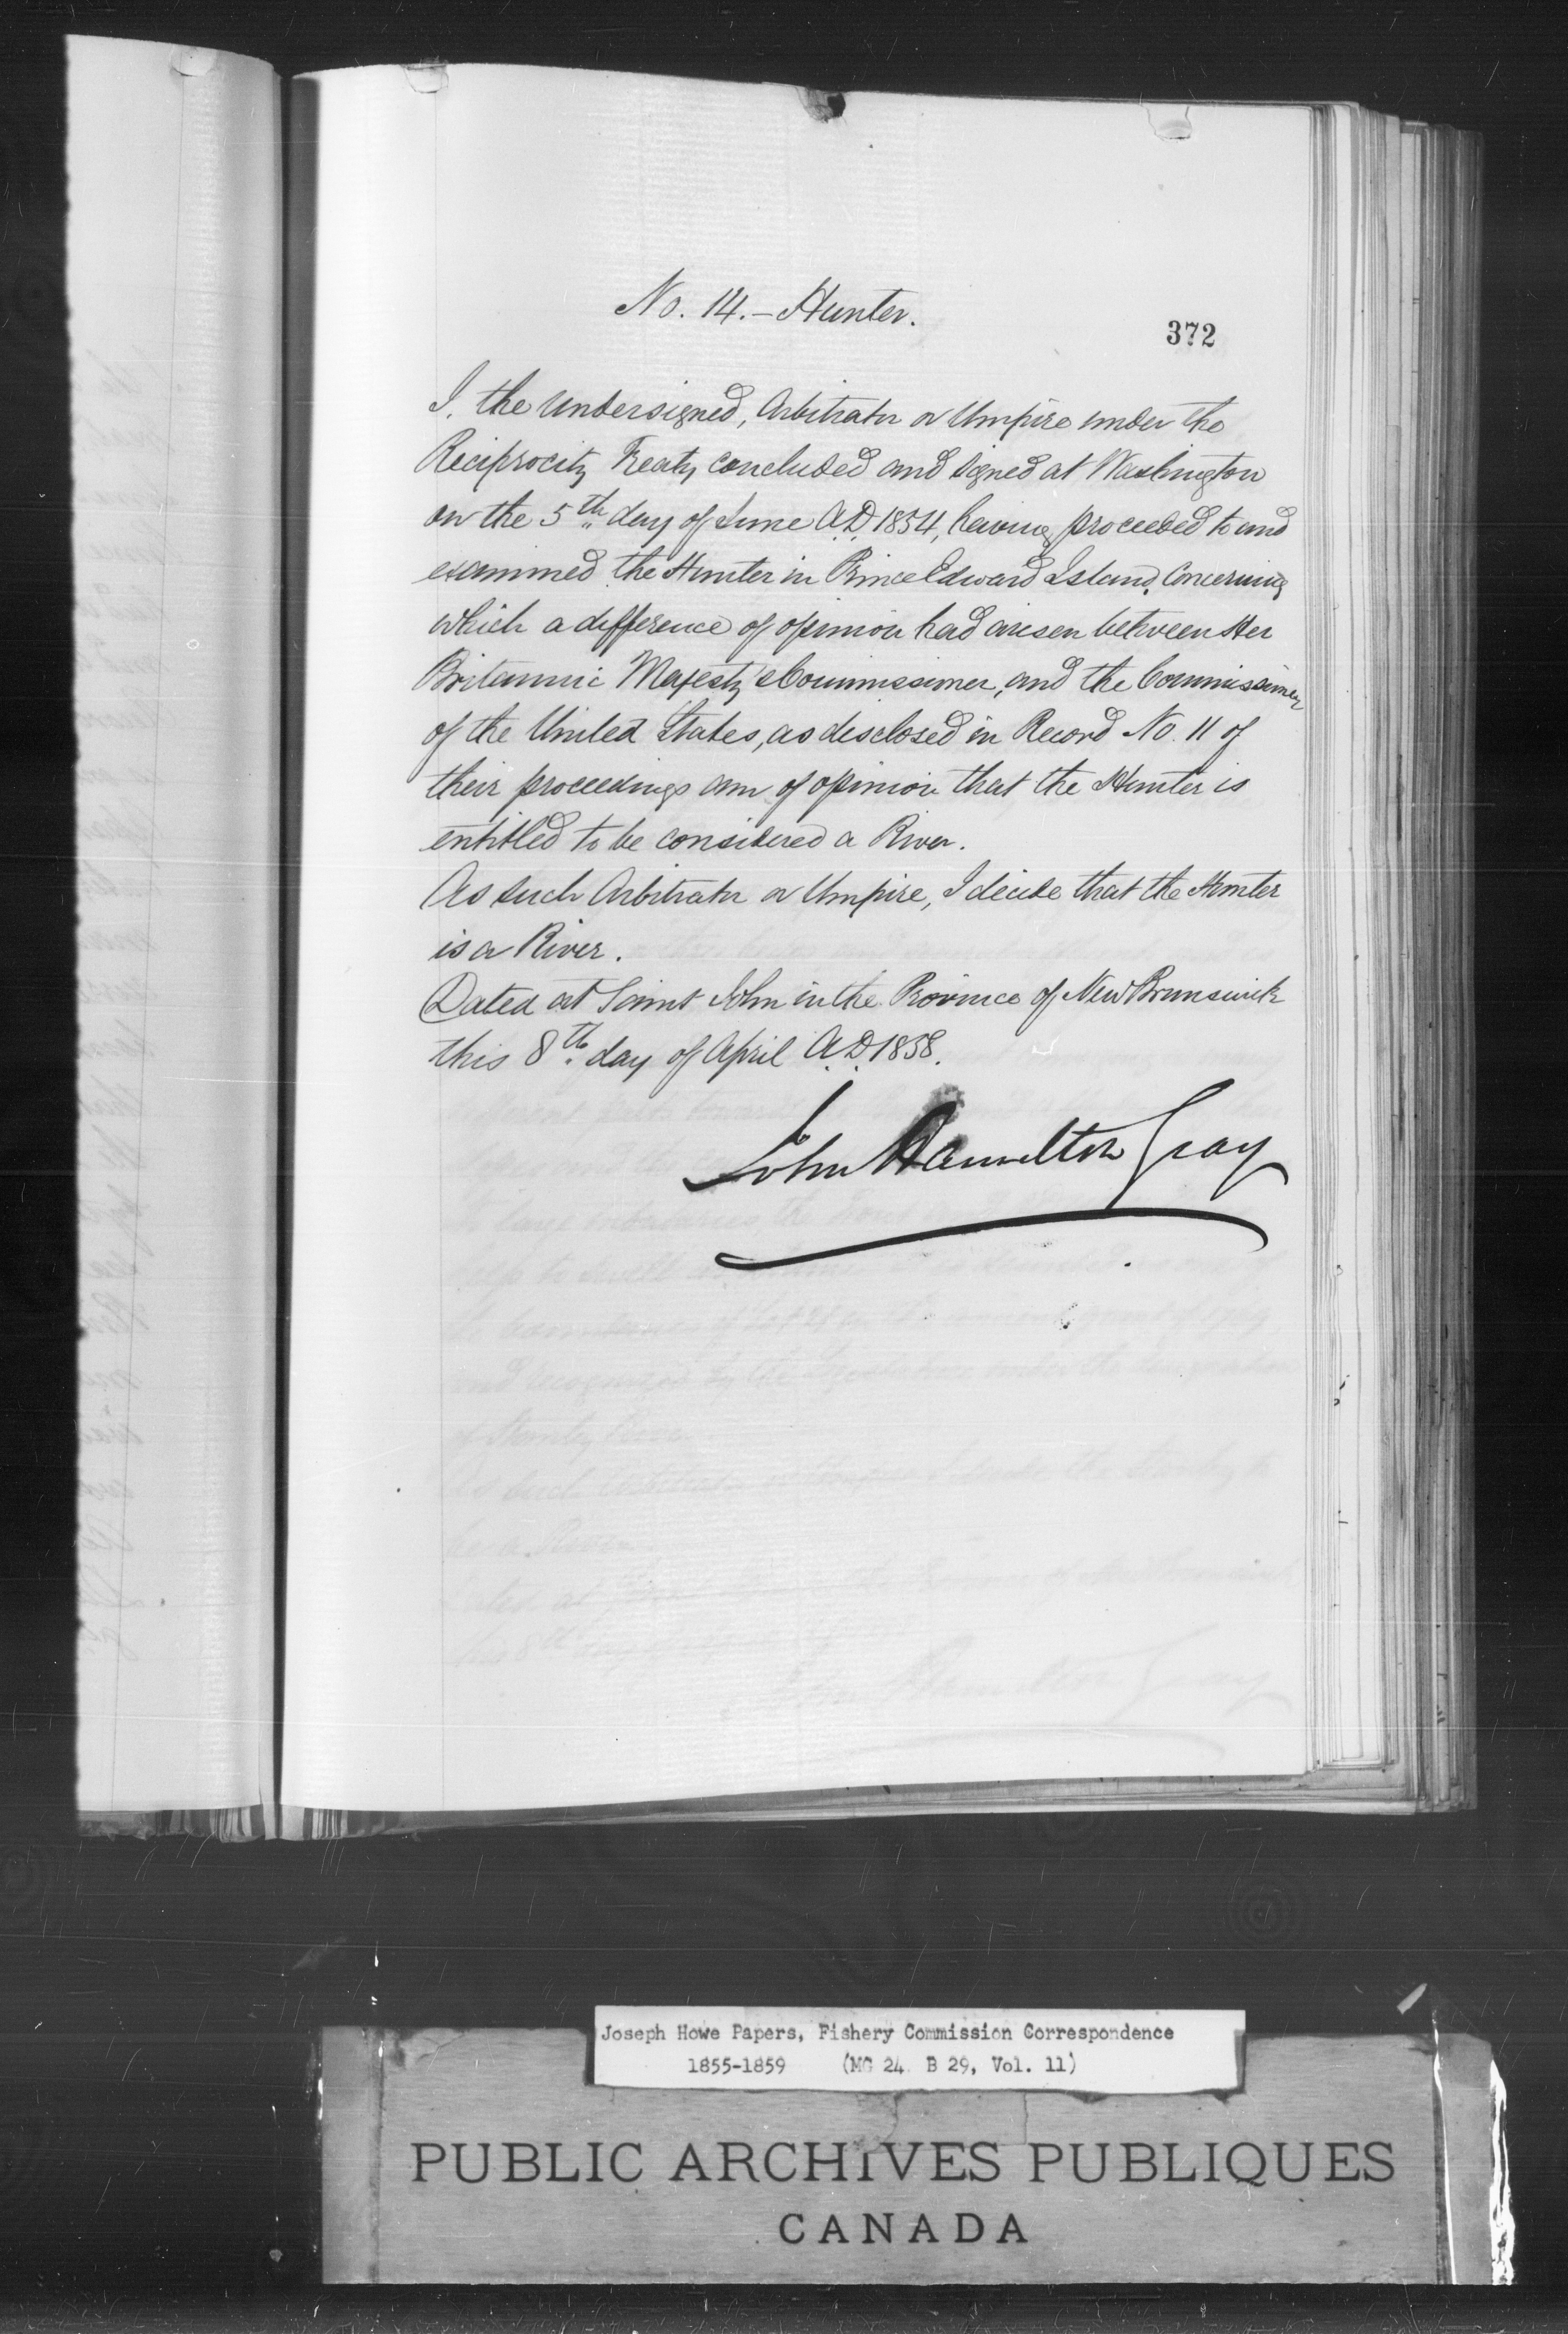 No. 14. – Hunter.
372
I, the undersigned, Arbitrator or Umpire under the
Reciprocity Treaty concluded and signed at Washington
on the 5th day of June A.D. 1854, having proceeded to and
examined the Hunter in Prince Edward Island, Concerning
which a difference of opinion had arisen between Her
Britannic Majesty's Commissioner, and the Commissioner
of the United States, as disclosed in Record No. 11 of
their proceedings am of opinion that the Hunter is
entitled to be considered a River.
As such Arbitrator or Umpire, I decide that the Hunter
is a River.
Dated at Saint John in the Province of New Brunswick
this 8th day of April A.D. 1858.
John Hamilton Gray
Joseph Howe Papers, Fishery Commission Correspondence
1855-1859 (MG 24 B 29, Vol. 11)
PUBLIC ARCHIVES PUBLIQUES
CANADA